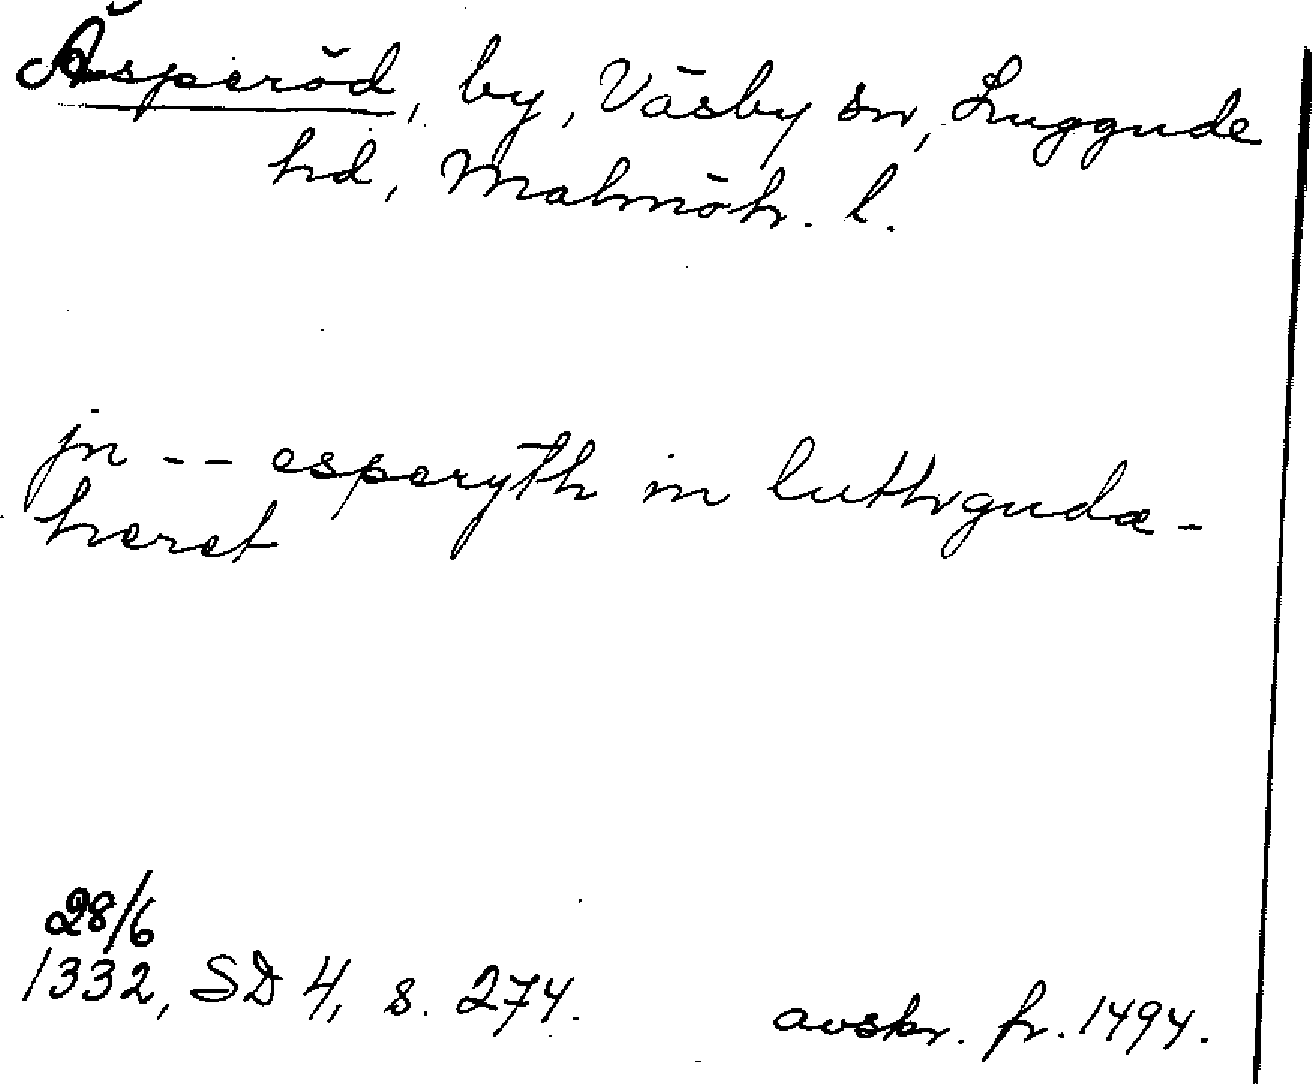 Äsperöd, by, Väsby sn, Luggude
hd, Malmöh. l.
jn -- esperyth in luthrguda-
heret
28/6
1332, SD 4, s. 274.
avskr. fr. 1494.